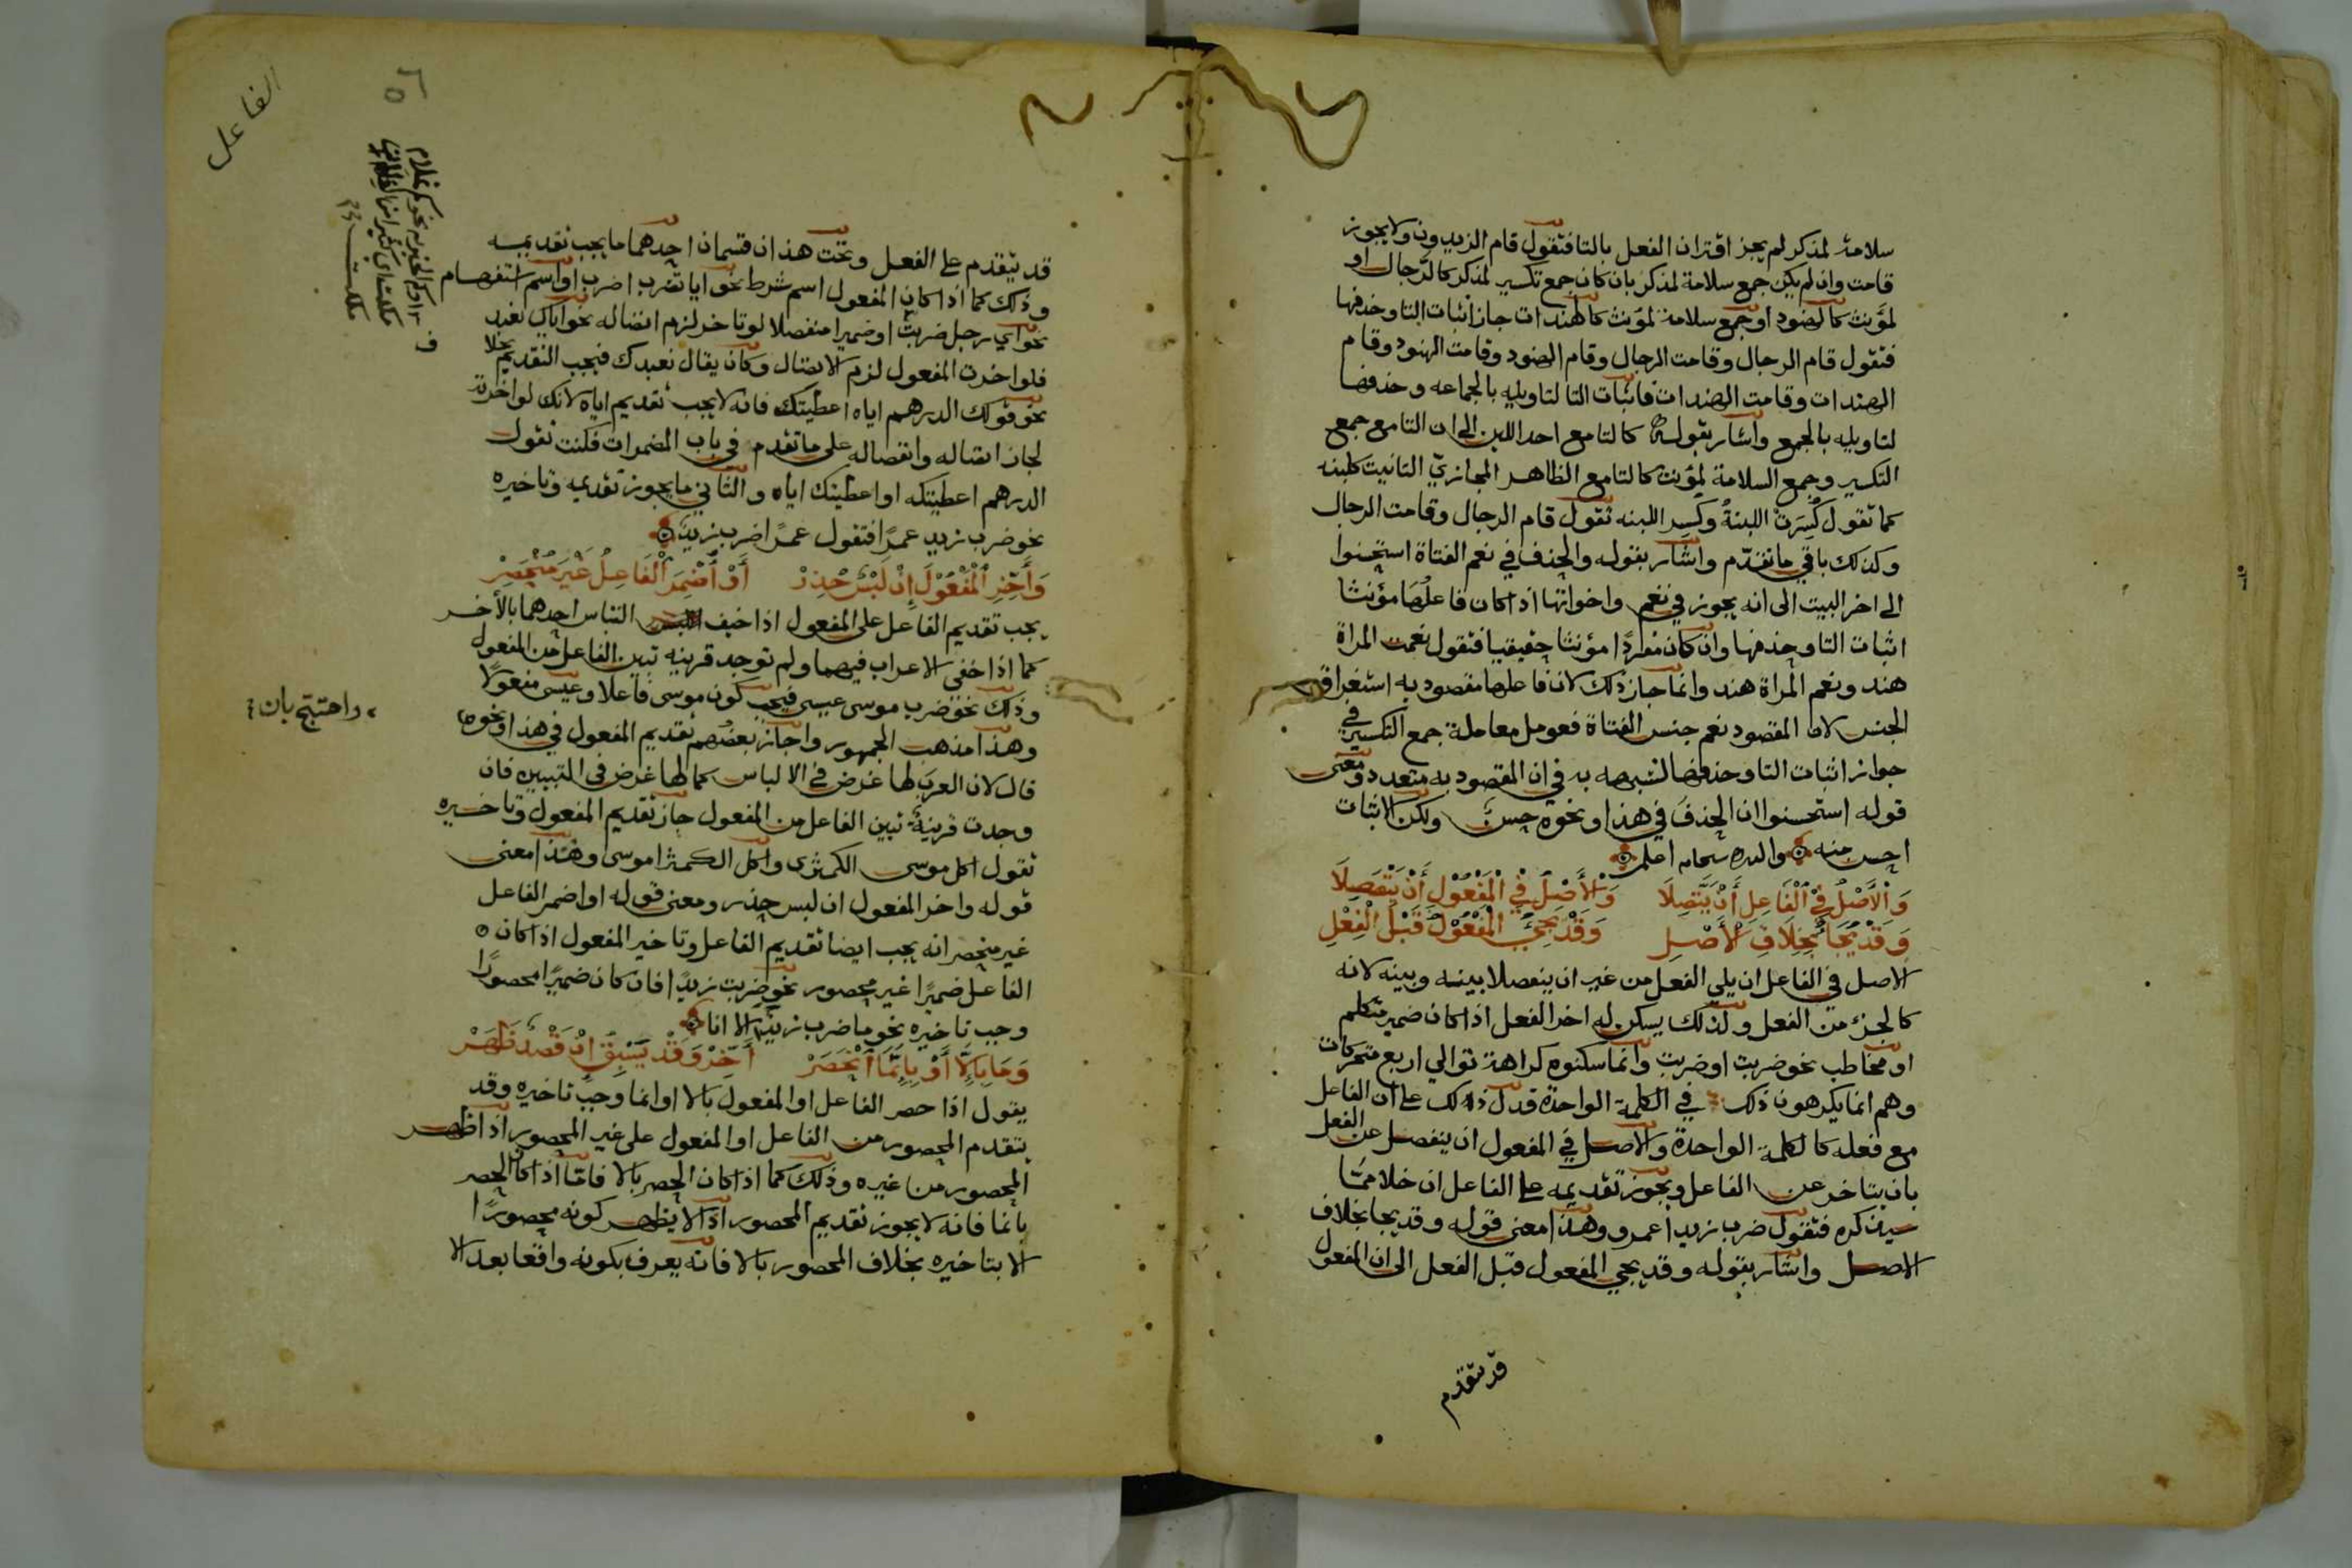 سلامة لمذكر لم يجز اقتران الفعل بالتا فتقول قام الزيدون ولا يجوز
قامت وان لم يكن جمع سلامة لمذكر بان كان جمع تكسير لمذكر كالرجال او
لمؤنث كالهنود او جمع سلامة لمؤنث كالهندات جاز اثبات التا وحذفها
فتقول قام الرجال وقامت الرجال وقام الهنود وقامت الهنود وقام
الهندات وقامت الهندات فاثبات التا لتاويله بالجماعه وحذفها
لتاويله بالجمع واشار بقوله كالتا مع احد اللبن الى ان التا مع جمع
التكسير وجمع السلامة لمؤنث كالتا مع الظاهر المجازيّ التانيث كلبنه
كما تقول كُسِرَتْ اللبنةُ وكسِر اللبنه تقول قام الرجال وقامت الرجال
وكذلك باقي ما تقدّم واشار بقوله والحذف في نعم الفتاة استحسنوا
الى اخر البيت الى انه يجوز في نعم واخواتها اذا كان فاعلُها مؤنثا
اثبات التا وحذفها وان كان مفردًا مؤنثا حقيقيا فتقول نعمت المراة
هند ونعم المراة هند وانما جاز ذلك لان فاعلها مقصود به استغراق
الجنس لان المقصود نعم جنس الفتاة فعومل معاملة جمع التكسير في
جواز اثبات التا وحذفها لشبهه به في ان المقصود به متعدد ومعنى
قوله استحسنوا ان الحذفَ في هذا ونحوه حسنٌ ولكن الاثبات
احسن منه والله سبحانه اعلم
وَالأَصْلُ فِي الْفَاعِلِ أَنْ يَتَّصِلَا وَالأَصْلُ فِي الْمَفْعُولِ أَنْ يَنْفَصِلَا
وَقَدْ يُجَاءُ بِخِلَافِ الأَصْلِ وَقَدْ يَجِيْ الْمَفْعُولُ قَبْلَ الْفِعْلِ
الاصل في الفاعل ان يلي الفعل من غير ان ينفصلا بينه وبينه لانه
كالجزء من الفعل ولذلك يسكن له اخر الفعل اذا كان ضمير متكلم
او مخاطب نحو ضربت او ضربت وانما سكنوه كراهة توالي اربع متحركات
وهم انما يكرهون ذلك في الكلمة الواحدة فدل ذلك على ان الفاعل
مع فعله كالكلمة الواحدة والاصل في المفعول ان ينفصل عن الفعل
بان يتاخر عن الفاعل ويجوز تقديمه على الفاعل ان خلا ممّا
سيذكره فتقول ضرب زيدا عمرو وهذا معنى قوله وقد يجا بخلاف
الاصل واشار بقوله وقد يجي المفعول قبل الفعل الى ان المفعول
قد يتقدم
الفاعل
قد يتقدم على الفعل وتحت هذان قسمان احدهما ما يجب تقديمه
وذلك كما اذا كان المفعول اسم شرط نحو ايا تضرب اضرب او اسم استفهام
نحو اي رجل ضربت او ضميرا منفصلا لو تاخر لزم اتصاله نحو اياك نعبد
فلو اخرت المفعول لزم الاتصال وكان يقال نعبدك فيجب التقديم بخلا
نحو قولك الدرهم اياه اعطيتك فانه لا يجب تقديم اياه لانك لو اخرته
لجاز اتصاله وانفصاله على ما تقدم في باب المضمرات فكنت تقول
الدرهم اعطيتكه او اعطيتك اياه والثاني ما يجوز تقديمه وتاخيره
نحو ضرب زيد عمرًا فتقول عمرًا ضرب زيدٌ
وَأَخِّرِ الْمَفْعُوْلَ إِنْ لَبْسٌ حُذِرْ أَوْ أُضْمِرَ الْفَاعِلُ غَيْرَ مُنْحَصِرْ
يجب تقديم الفاعل على المفعول اذا خيف التباس احدهما بالأخر
كما اذا خفى الاعراب فيهما ولم توجد قرينه تبين الفاعل من المفعول
وذلك نحو ضرب موسى عيسى فيجب كون موسى فاعلا وعيسى مفعولا
وهذا مذهب الجمهور واجاز بعضُهم تقديم المفعول في هذا ونحوه
قال لان العربَ لها غرض في الالباس كما لها غرض في التبيين فان
وجدت قرينةٌ تبين الفاعل من المفعول جاز تقديم المفعول وتاخيره
تقول اكل موسى الكمثرى واكل الكمثرا موسى وهذا معنى
قوله واخر المفعول ان لبس حذر ومعنى قوله او اضمر الفاعل
غير منحصر انه يجب ايضا تقديم الفاعل وتاخير المفعول اذا كان
الفاعل ضميرًا غير محصور نحو ضربت زيدًا فان كان ضميرًا محصورًا
وجب تاخيره نحو ما ضرب زيدًا الا انا
وَمَا بِإِلَّا أَوْ بِإِنَّمَا انْحَصَرْ أَخِّرْ وَقَدْ يَسْبِقُ إِنْ قَصْدٌ ظَهَرْ
يقول اذا حصر الفاعل او المفعول بالا او انما وجبَ تاخيره وقد
يتقدم المحصور من الفاعل او المفعول على غير المحصور اذا ظهر
المحصور من غيره وذلك كما اذا كان الحصر بالا فامّا اذا كان الحصر
بانما فانه لا يجوز تقديم المحصور اذ لا يظهر كونه محصورًا
الا بتاخيره بخلاف المحصور بالا فانه يعرف بكونه واقعا بعد الا
واحتج بان